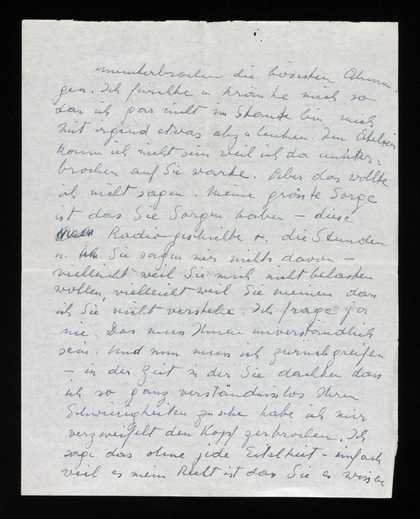 ununterbrochen die bösesten Ahnun-
gen. Ich fürchte u kränke mich so
das ich gar nicht im Stande bin mich
mit irgend etwas abzulenken. Im Atelier
kann ich nicht sein weil ich da ununter-
brochen auf Sie warte. Aber das wollte
ich nicht sagen. Meine grösste Sorge
ist das Sie Sorgen haben – diese
Radiogeschichte u. die Stunden
u. Sie sagen mir nichts davon –
vielleicht weil Sie mich nicht belasten
wollen, vielleicht weil Sie meinen das
ich Sie nicht verstehe. Ich frage ja
nie. Das muss Ihnen unverständlich
sein. Und nun muss ich zurückgreifen
– in der Zeit in der Sie dachten dass
ich so ganz verständnislos Ihren
Schwierigkeiten zusehe habe ich mir
verzweifelt den Kopf zerbrochen. Ich
sage das ohne jede Eitelkeit – einfach
weil es mein Recht ist das Sie es wissen